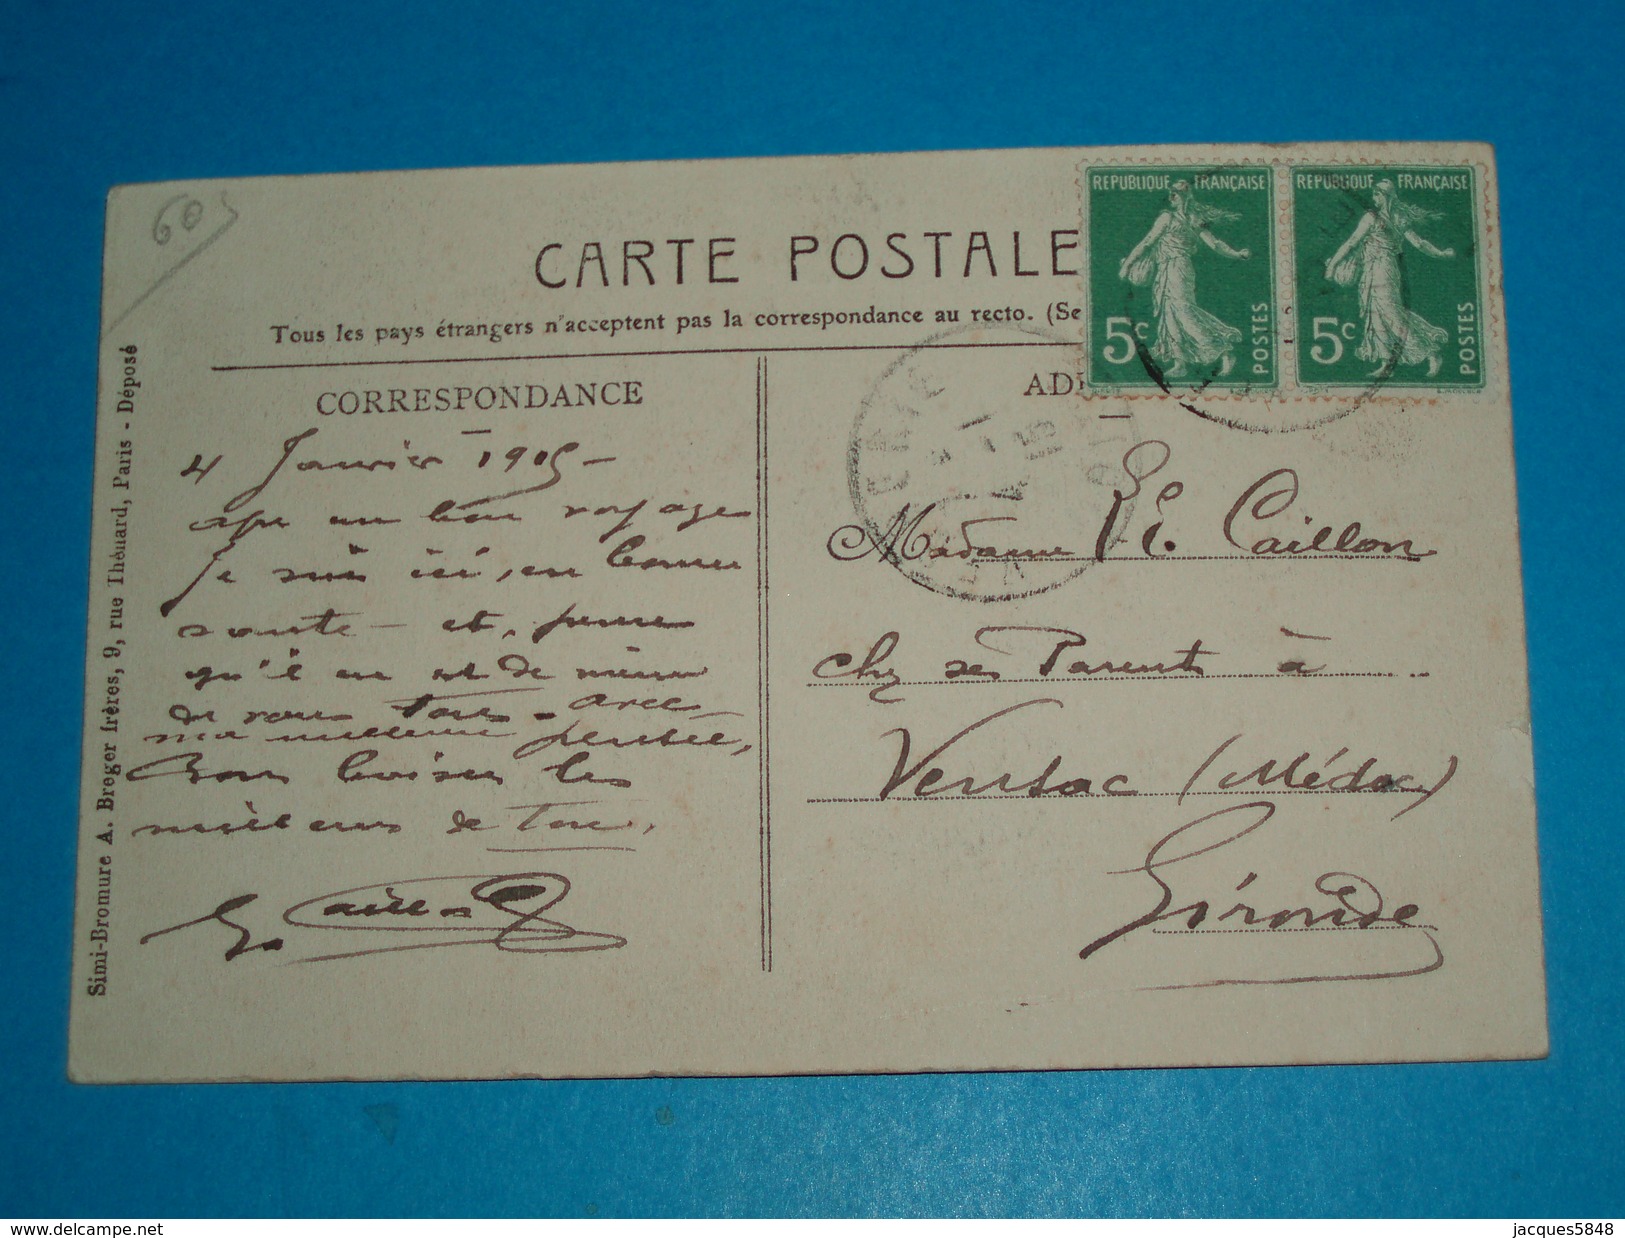 60
CARTE POSTALE
Tous les pays étrangers n'acceptent pas la correspondance au recto. (Se
CORRESPONDANCE
4 Janvier 1915 -
apr un bon voyage
Je suis ici, en bonne
sante - et, pense
qu'il en est de même
de vous tous - avec
ma meilleure pensée,
Bons baisers les
meilleurs de ton.
G. Caillon
Simi-Bromure A. Breger frères, 9, rue Thénard, Paris - Déposé
REPUBLIQUE FRANÇAISE
5c
POSTES
REPUBLIQUE FRANÇAISE
5c
POSTES
AD
Madame E. Caillon
chz ses Parents à
Vensac (Médoc)
Gironde
www.delcampe.net
jacques5848